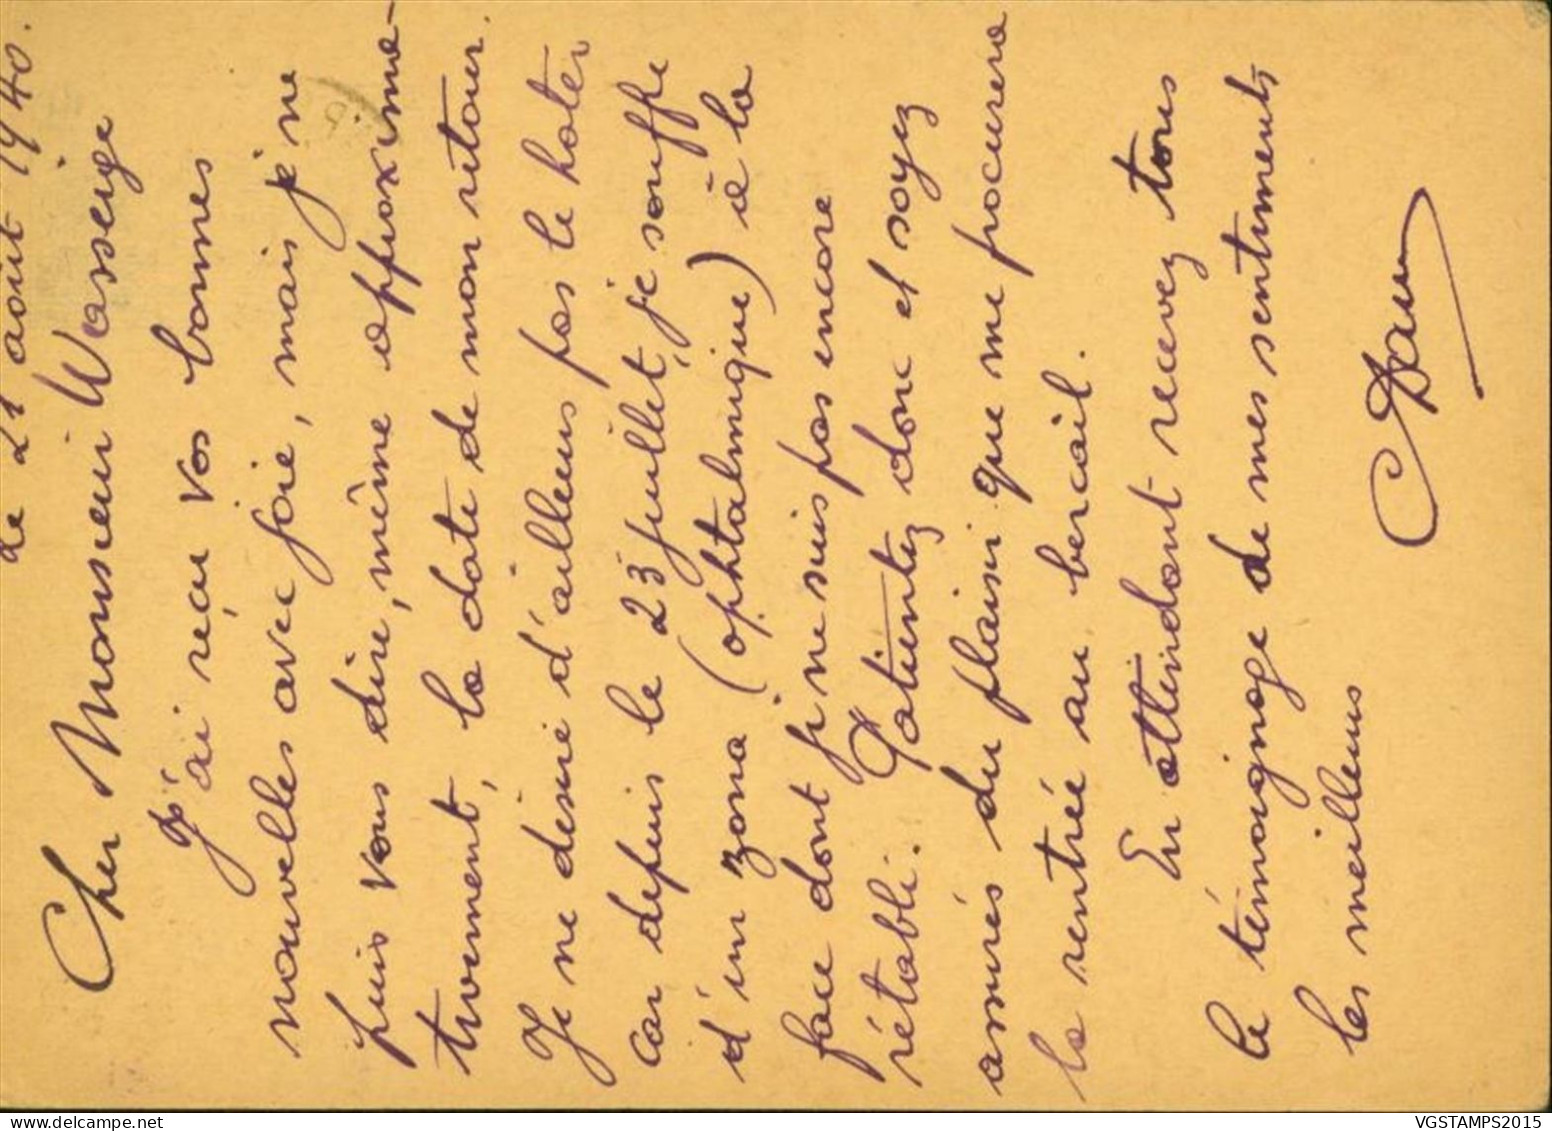 le 21 août 1940.
Cher Monsieur Wasseige
J'ai reçu vos bonnes
nouvelles avec joie, mais je ne
puis vous dire, même approxima-
tivement, la date de mon retour.
Je ne désire d'ailleurs pas le hâter
car depuis le 23 juillet, je souffre
d'un zona (ophtalmique) à la
face dont je ne suis pas encore
rétabli. Patientez donc et soyez
assurés du plaisir que me procurera
la rentrée au bercail.
En attendant recevez tous
le témoignage de mes sentiments
les meilleurs
VGSTAMPS2015